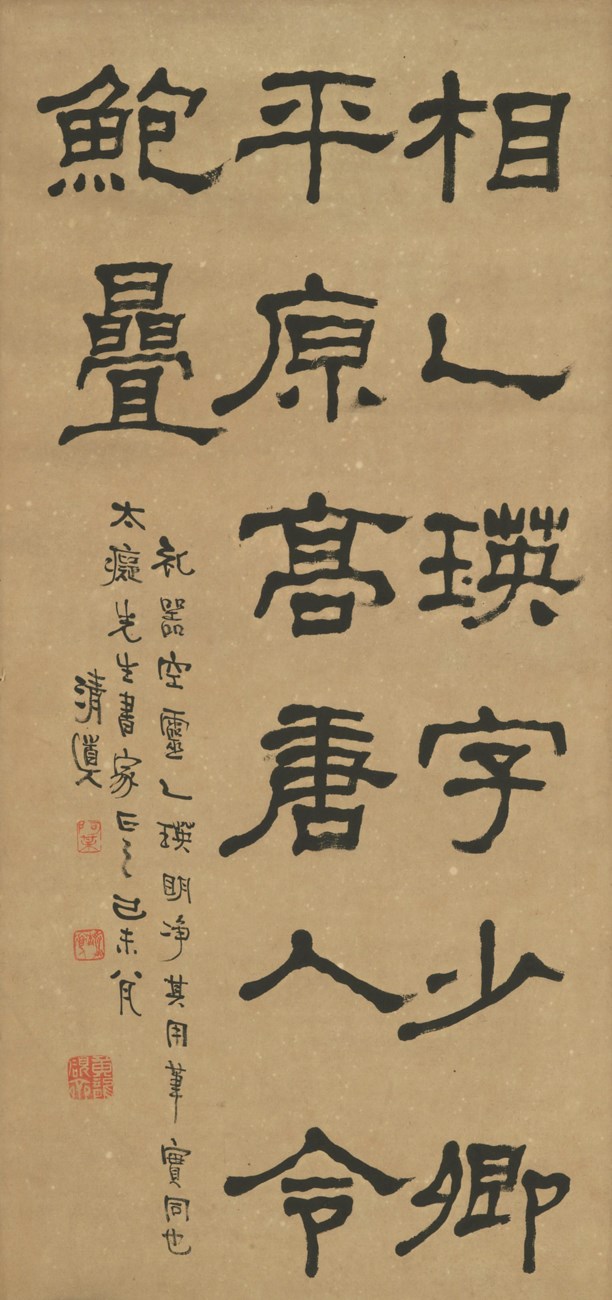 相乙瑛字少卿
平原高唐人令
鮑疊
礼器空靈乙瑛明净其用筆實同也
太癡先生書家正之己未八月
清道人